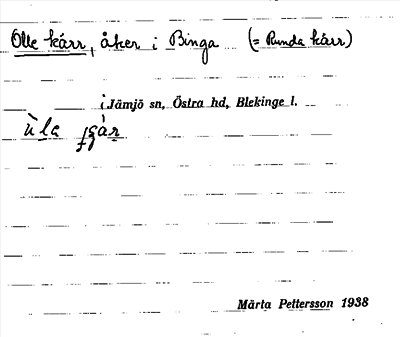 Olle kärr, åker i Binga (= Runda kärr)
i Jämjö sn, Östra hd, Blekinge l.
Märta Pettersson 1938